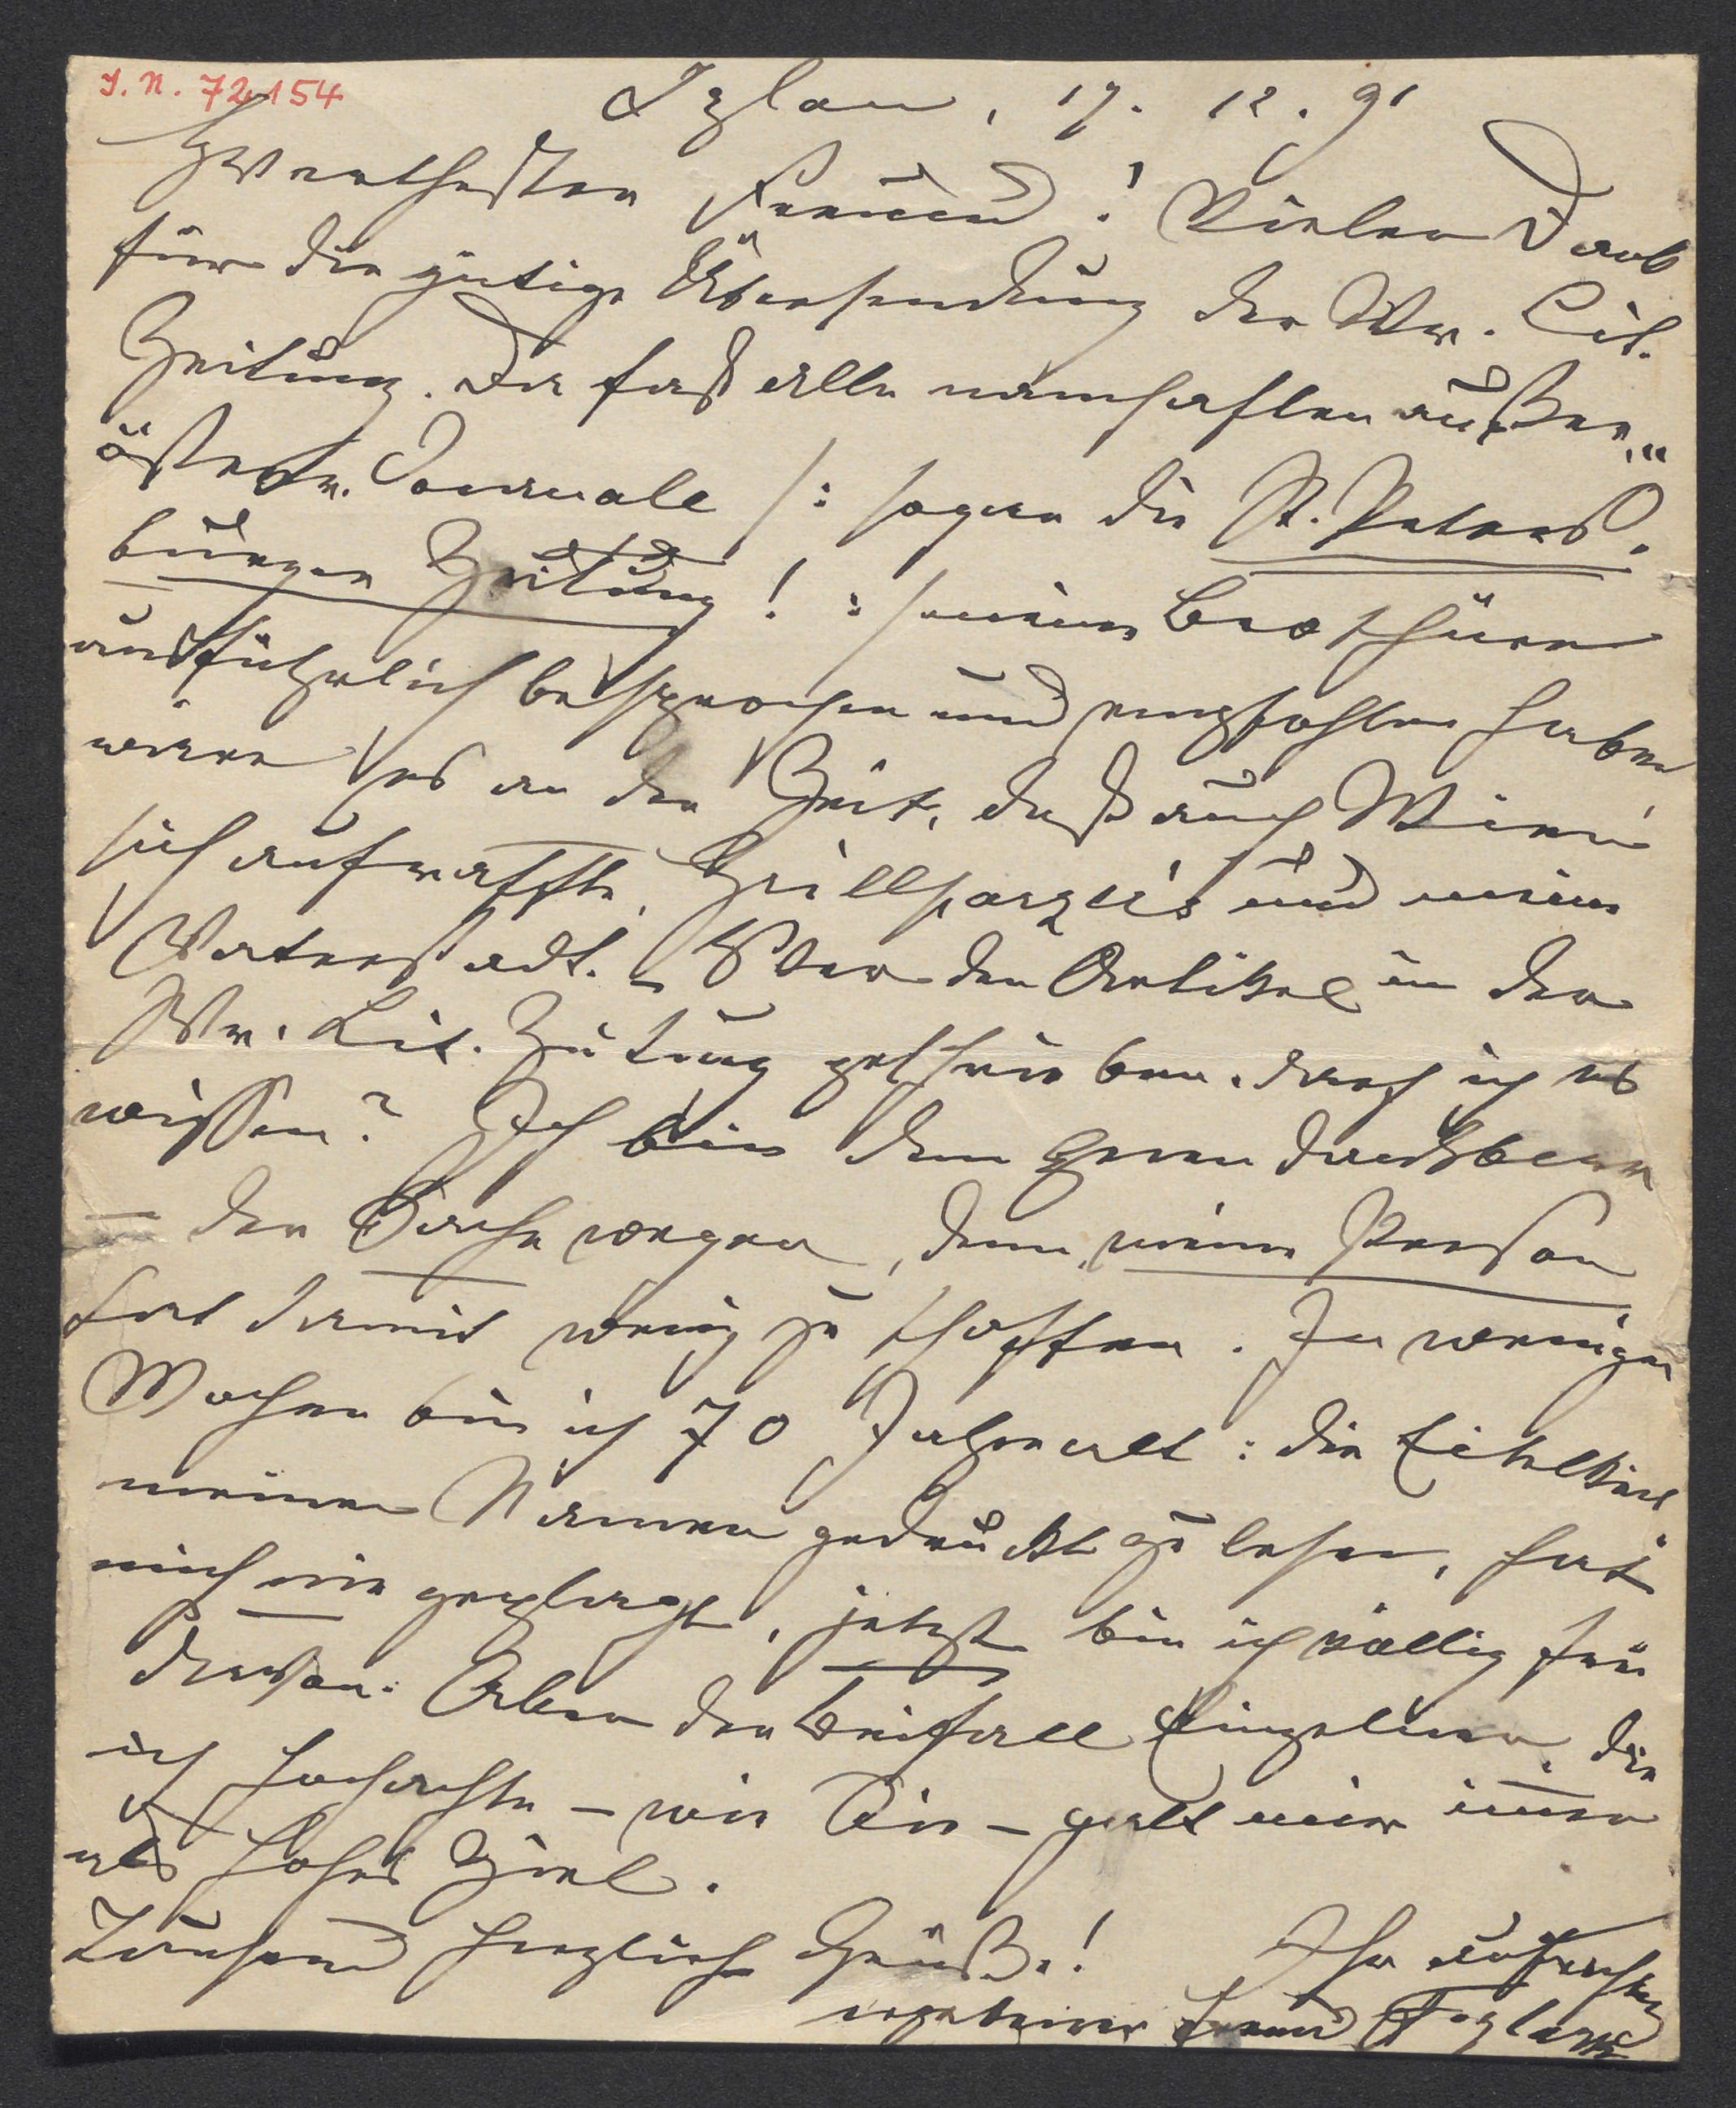 I. N. 72.154
Iglau, 17. 12. 91
Werthester Freund! Vielen Dank
für die gütige Übersendung der Wr. Lit.
Zeitung. Da fast alle namhaften außer-
österr. Journale /: sogar die St. Peters-
burger Zeitung! :/ meine Brochüre
ausführlich besprochen und empfohlen haben
wäre es an der Zeit, daß auch Wien
sich aufraffte, Grillparzer's und meine
Vaterstadt. Wer den Artikel in der
Wr. Lit. Zeitung geschrieben, darf ich es
wissen? Ich bin dem Herrn dankbar
– der Sache wegen, denn meine Person
hat damit wenig zu schaffen. In wenigen
Wochen bin ich 70 Jahre alt: die Eitelkeit
meinen Namen gedruckt zu lesen, hat
mich nie geplagt, jetzt bin ich völlig frei
davon. Aber der Beifall Einzelner, die
ich hochachte – wie Sie – galt mir immer
als hohes Ziel.
Tausend herzliche Grüße! Ihr aufrichtig
ergebener Freund Foglar